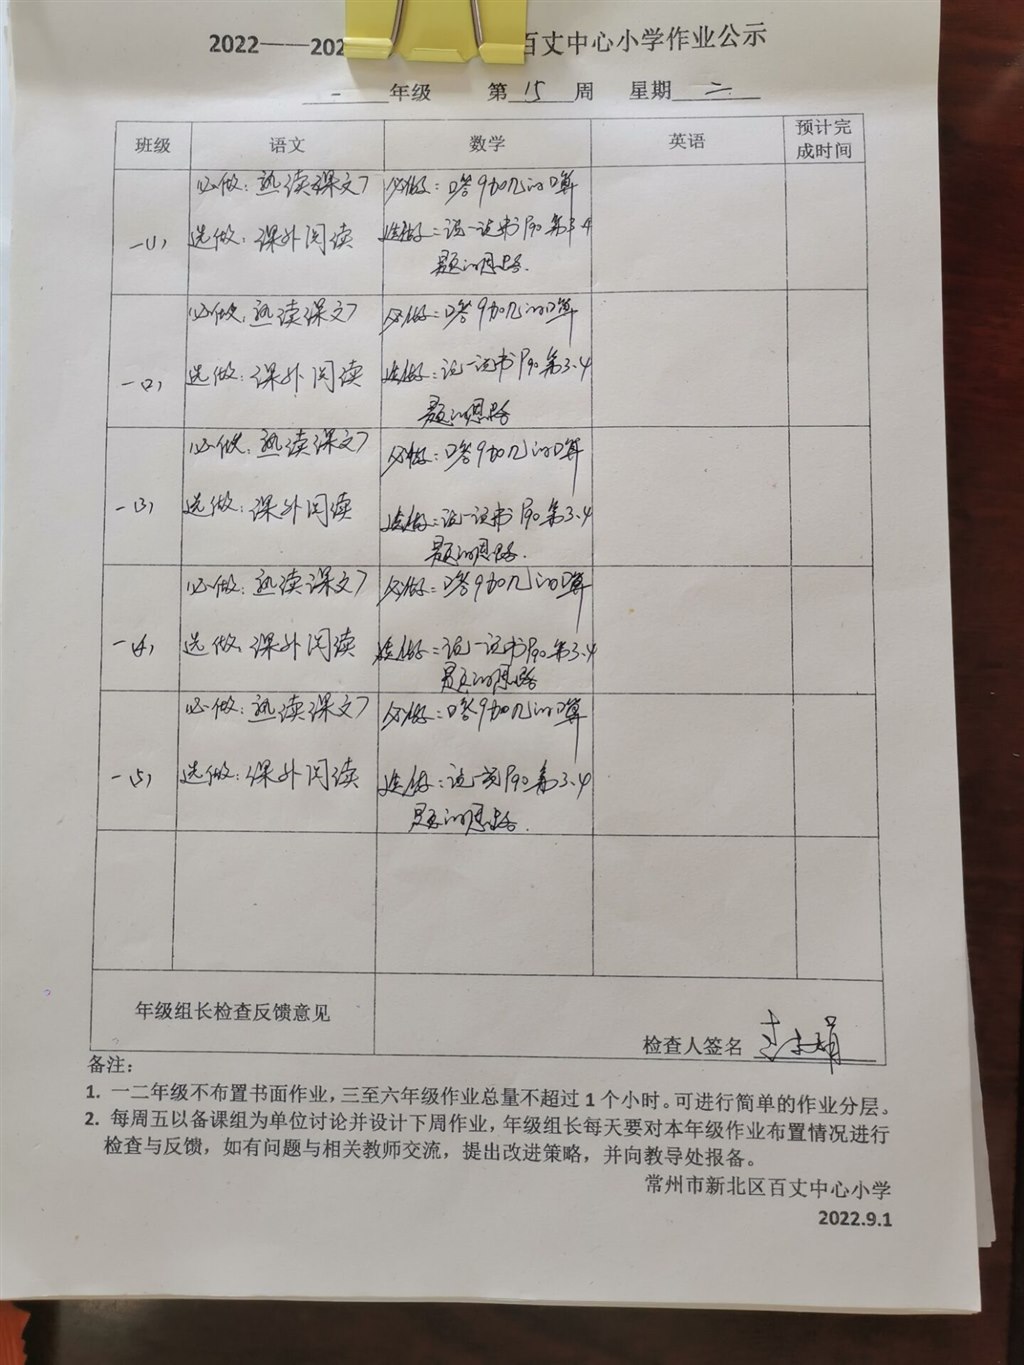 2022——202 百丈中心小学作业公示
一 年级 第 15 周 星期 二
班级 语文 数学 英语 预计完成时间
必做：熟读课文7 必做：口答9加几的口算
一(1) 选做：课外阅读 选做：说一说书P90第3.4
题的思路.
必做：熟读课文7 必做：口答9加几的口算
一(2) 选做：课外阅读 选做：说一说书P90第3.4
题的思路
必做：熟读课文7 必做：口答9加几的口算
一(3) 选做：课外阅读 选做：说一说书P90第3.4
题的思路.
必做：熟读课文7 必做：口答9加几的口算
一(4) 选做：课外阅读 选做：说一说书P90第3.4
题的思路
必做：熟读课文7 必做：口答9加几的口算
一(5) 选做：课外阅读 选做：说一说P90第3.4
题的思路.
年级组长检查反馈意见
检查人签名
备注：
1. 一二年级不布置书面作业，三至六年级作业总量不超过 1 个小时。可进行简单的作业分层。
2. 每周五以备课组为单位讨论并设计下周作业，年级组长每天要对本年级作业布置情况进行
检查与反馈，如有问题与相关教师交流，提出改进策略，并向教导处报备。
常州市新北区百丈中心小学
2022.9.1